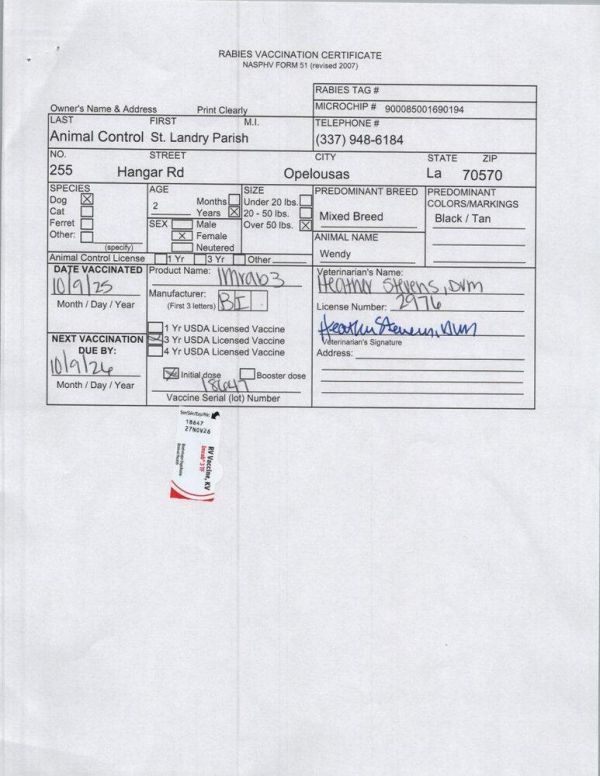 RABIES VACCINATION CERTIFICATE
NASPHV FORM 51 (revised 2007)
RABIES TAG #
Owner's Name & Address Print Clearly
MICROCHIP # 900085001690194
LAST FIRST M.I.
TELEPHONE #
Animal Control St. Landry Parish
(337) 948-6184
NO. STREET CITY STATE ZIP
255 Hangar Rd Opelousas La 70570
SPECIES
Dog
Cat
Ferret
Other:
(specify)
AGE
2
Months
Years
SEX
Male
Female
Neutered
SIZE
Under 20 lbs.
20 - 50 lbs.
Over 50 lbs.
PREDOMINANT BREED
Mixed Breed
ANIMAL NAME
Wendy
PREDOMINANT
COLORS/MARKINGS
Black / Tan
Animal Control License 1 Yr 3 Yr Other
DATE VACCINATED
10/9/25
Month / Day / Year
NEXT VACCINATION
DUE BY:
10/9/26
Month / Day / Year
Product Name: Imrab3
Manufacturer: BI
(First 3 letters)
1 Yr USDA Licensed Vaccine
3 Yr USDA Licensed Vaccine
4 Yr USDA Licensed Vaccine
Initial dose Booster dose
18647
Vaccine Serial (lot) Number
Veterinarian's Name:
Heather Stevens, DVM
License Number: 2976
Heather Stevens, DVM
Veterinarian's Signature
Address:
18647
27NOV26
RV Vaccine, KV
imrab® 3 TF